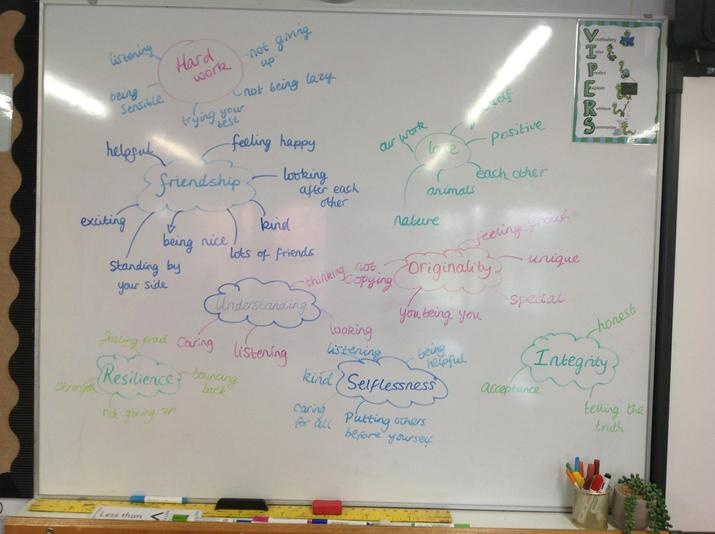 Hard
work
listening
being
sensible
trying your
best
not being lazy
not giving
up
friendship
helpful
feeling happy
looking
after each
other
kind
lots of friends
being nice
standing by
your side
exciting
love
our work
positive
each other
animals
nature
Originality
not
copying
feeling proud
unique
special
you being you
Understanding
thinking
looking
listening
caring
Resilience
feeling proud
bouncing
back
not giving up
Selflessness
listening
being
helpful
kind
caring
for all
Putting others
before yourself
Integrity
honest
acceptance
telling the
truth
VIPERS
Vocabulary
Infer
Predict
Explain
Retrieve
Summarise
Less than <